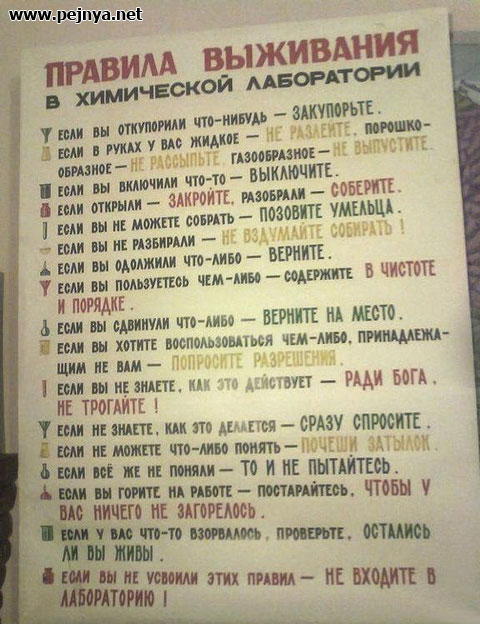 www.pejnya.net
ПРАВИЛА ВЫЖИВАНИЯ
В ХИМИЧЕСКОЙ ЛАБОРАТОРИИ
ЕСЛИ ВЫ ОТКУПОРИЛИ ЧТО-НИБУДЬ — ЗАКУПОРЬТЕ.
ЕСЛИ В РУКАХ У ВАС ЖИДКОЕ — НЕ РАЗЛЕЙТЕ, ПОРОШКО-
ОБРАЗНОЕ — НЕ РАССЫПЬТЕ, ГАЗООБРАЗНОЕ — НЕ ВЫПУСТИТЕ.
ЕСЛИ ВЫ ВКЛЮЧИЛИ ЧТО-ТО — ВЫКЛЮЧИТЕ.
ЕСЛИ ОТКРЫЛИ — ЗАКРОЙТЕ, РАЗОБРАЛИ — СОБЕРИТЕ.
ЕСЛИ ВЫ НЕ МОЖЕТЕ СОБРАТЬ — ПОЗОВИТЕ УМЕЛЬЦА.
ЕСЛИ ВЫ НЕ РАЗБИРАЛИ — НЕ ВЗДУМАЙТЕ СОБИРАТЬ!
ЕСЛИ ВЫ ОДОЛЖИЛИ ЧТО-ЛИБО — ВЕРНИТЕ.
ЕСЛИ ВЫ ПОЛЬЗУЕТЕСЬ ЧЕМ-ЛИБО — СОДЕРЖИТЕ В ЧИСТОТЕ
И ПОРЯДКЕ.
ЕСЛИ ВЫ СДВИНУЛИ ЧТО-ЛИБО — ВЕРНИТЕ НА МЕСТО.
ЕСЛИ ВЫ ХОТИТЕ ВОСПОЛЬЗОВАТЬСЯ ЧЕМ-ЛИБО, ПРИНАДЛЕЖА-
ЩИМ НЕ ВАМ — ПОПРОСИТЕ РАЗРЕШЕНИЯ.
ЕСЛИ ВЫ НЕ ЗНАЕТЕ, КАК ЭТО ДЕЙСТВУЕТ — РАДИ БОГА,
НЕ ТРОГАЙТЕ!
ЕСЛИ НЕ ЗНАЕТЕ, КАК ЭТО ДЕЛАЕТСЯ — СРАЗУ СПРОСИТЕ.
ЕСЛИ НЕ МОЖЕТЕ ЧТО-ЛИБО ПОНЯТЬ — ПОЧЕШИ ЗАТЫЛОК.
ЕСЛИ ВСЁ ЖЕ НЕ ПОНЯЛИ — ТО И НЕ ПЫТАЙТЕСЬ.
ЕСЛИ ВЫ ГОРИТЕ НА РАБОТЕ — ПОСТАРАЙТЕСЬ, ЧТОБЫ У
ВАС НИЧЕГО НЕ ЗАГОРЕЛОСЬ.
ЕСЛИ У ВАС ЧТО-ТО ВЗОРВАЛОСЬ, ПРОВЕРЬТЕ, ОСТАЛИСЬ
ЛИ ВЫ ЖИВЫ.
ЕСЛИ ВЫ НЕ УСВОИЛИ ЭТИХ ПРАВИЛ — НЕ ВХОДИТЕ В
ЛАБОРАТОРИЮ!